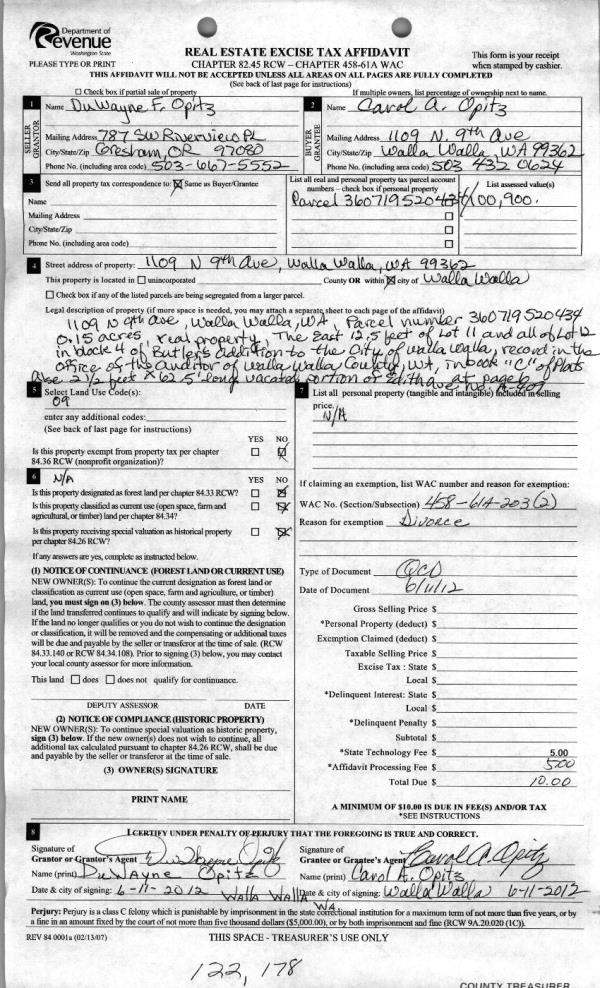 Department of
Revenue
Washington State
PLEASE TYPE OR PRINT
REAL ESTATE EXCISE TAX AFFIDAVIT
CHAPTER 82.45 RCW – CHAPTER 458-61A WAC
This form is your receipt
when stamped by cashier.
THIS AFFIDAVIT WILL NOT BE ACCEPTED UNLESS ALL AREAS ON ALL PAGES ARE FULLY COMPLETED
(See back of last page for instructions)
Check box if partial sale of property
If multiple owners, list percentage of ownership next to name.
1 SELLER GRANTOR
Name DuWayne F. Opitz
Mailing Address 787 SW Riverview Pl
City/State/Zip Gresham, OR 97080
Phone No. (including area code) 503-667-5552
2 BUYER GRANTEE
Name Carol A. Opitz
Mailing Address 1109 N. 9th Ave
City/State/Zip Walla Walla, WA 99362
Phone No. (including area code) 503 432 0624
3 Send all property tax correspondence to: Same as Buyer/Grantee
Name
Mailing Address
City/State/Zip
Phone No. (including area code)
List all real and personal property tax parcel account
numbers – check box if personal property
Parcel 360719520434
List assessed value(s)
100,900.
4 Street address of property: 1109 N 9th Ave, Walla Walla, WA 99362
This property is located in unincorporated County OR within city of Walla Walla
Check box if any of the listed parcels are being segregated from a larger parcel.
Legal description of property (if more space is needed, you may attach a separate sheet to each page of the affidavit)
1109 N 9th ave, Walla Walla, WA, Parcel number 360719520434
0.15 acres, real property, The East 12.5 feet of Lot 11 and all of Lot 12
in block 4 of Butler's addition to the City of walla walla, record in the
office of the auditor of walla walla County, WA, in book "C" of Plats
at page 6
Also 2 1/2 feet x 62.5' long vacated portion of Editha ave no. A-409
5 Select Land Use Code(s):
09
enter any additional codes:
(See back of last page for instructions)
YES NO
Is this property exempt from property tax per chapter
84.36 RCW (nonprofit organization)?
6 N/A YES NO
Is this property designated as forest land per chapter 84.33 RCW?
Is this property classified as current use (open space, farm and
agricultural, or timber) land per chapter 84.34?
Is this property receiving special valuation as historical property
per chapter 84.26 RCW?
If any answers are yes, complete as instructed below.
(1) NOTICE OF CONTINUANCE (FOREST LAND OR CURRENT USE)
NEW OWNER(S): To continue the current designation as forest land or
classification as current use (open space, farm and agriculture, or timber)
land, you must sign on (3) below. The county assessor must then determine
if the land transferred continues to qualify and will indicate by signing below.
If the land no longer qualifies or you do not wish to continue the designation
or classification, it will be removed and the compensating or additional taxes
will be due and payable by the seller or transferor at the time of sale. (RCW
84.33.140 or RCW 84.34.108). Prior to signing (3) below, you may contact
your local county assessor for more information.
This land does does not qualify for continuance.
DEPUTY ASSESSOR DATE
(2) NOTICE OF COMPLIANCE (HISTORIC PROPERTY)
NEW OWNER(S): To continue special valuation as historic property,
sign (3) below. If the new owner(s) does not wish to continue, all
additional tax calculated pursuant to chapter 84.26 RCW, shall be due
and payable by the seller or transferor at the time of sale.
(3) OWNER(S) SIGNATURE
PRINT NAME
7 List all personal property (tangible and intangible) included in selling
price.
N/A
If claiming an exemption, list WAC number and reason for exemption:
WAC No. (Section/Subsection) 458-61A-203(2)
Reason for exemption Divorce
Type of Document QCD
Date of Document 6/11/12
Gross Selling Price $
*Personal Property (deduct) $
Exemption Claimed (deduct) $
Taxable Selling Price $
Excise Tax : State $
Local $
*Delinquent Interest: State $
Local $
*Delinquent Penalty $
Subtotal $
*State Technology Fee $ 5.00
*Affidavit Processing Fee $ 5.00
Total Due $ 10.00
A MINIMUM OF $10.00 IS DUE IN FEE(S) AND/OR TAX
*SEE INSTRUCTIONS
8 I CERTIFY UNDER PENALTY OF PERJURY THAT THE FOREGOING IS TRUE AND CORRECT.
Signature of
Grantor or Grantor's Agent DuWayne Opitz
Name (print) DuWayne Opitz
Date & city of signing: 6-11-2012 Walla Walla WA
Signature of
Grantee or Grantee's Agent Carol A. Opitz
Name (print) Carol A. Opitz
Date & city of signing: Walla Walla 6-11-2012
Perjury: Perjury is a class C felony which is punishable by imprisonment in the state correctional institution for a maximum term of not more than five years, or by
a fine in an amount fixed by the court of not more than five thousand dollars ($5,000.00), or by both imprisonment and fine (RCW 9A.20.020 (1C)).
REV 84 0001a (02/13/07)
THIS SPACE - TREASURER'S USE ONLY
122,178
COUNTY TREASURER